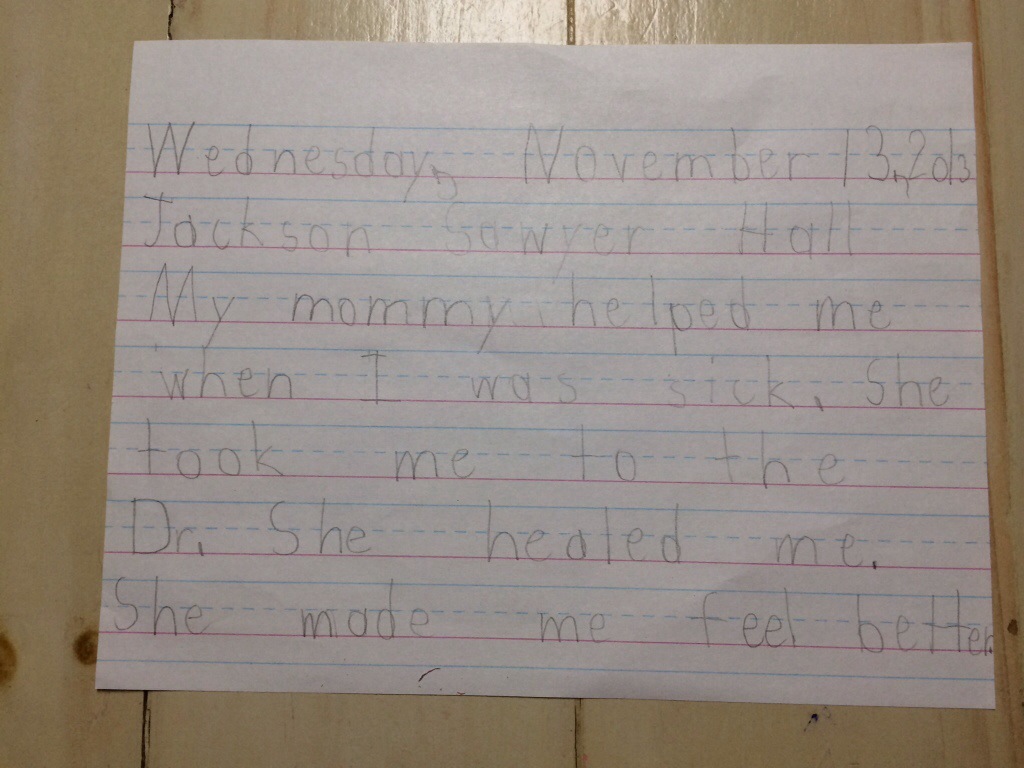 Wednesday, November 13, 2013
Jackson Sawyer Hall
My mommy helped me
when I was sick. She
took me to the
Dr. She healed me.
She made me feel better.